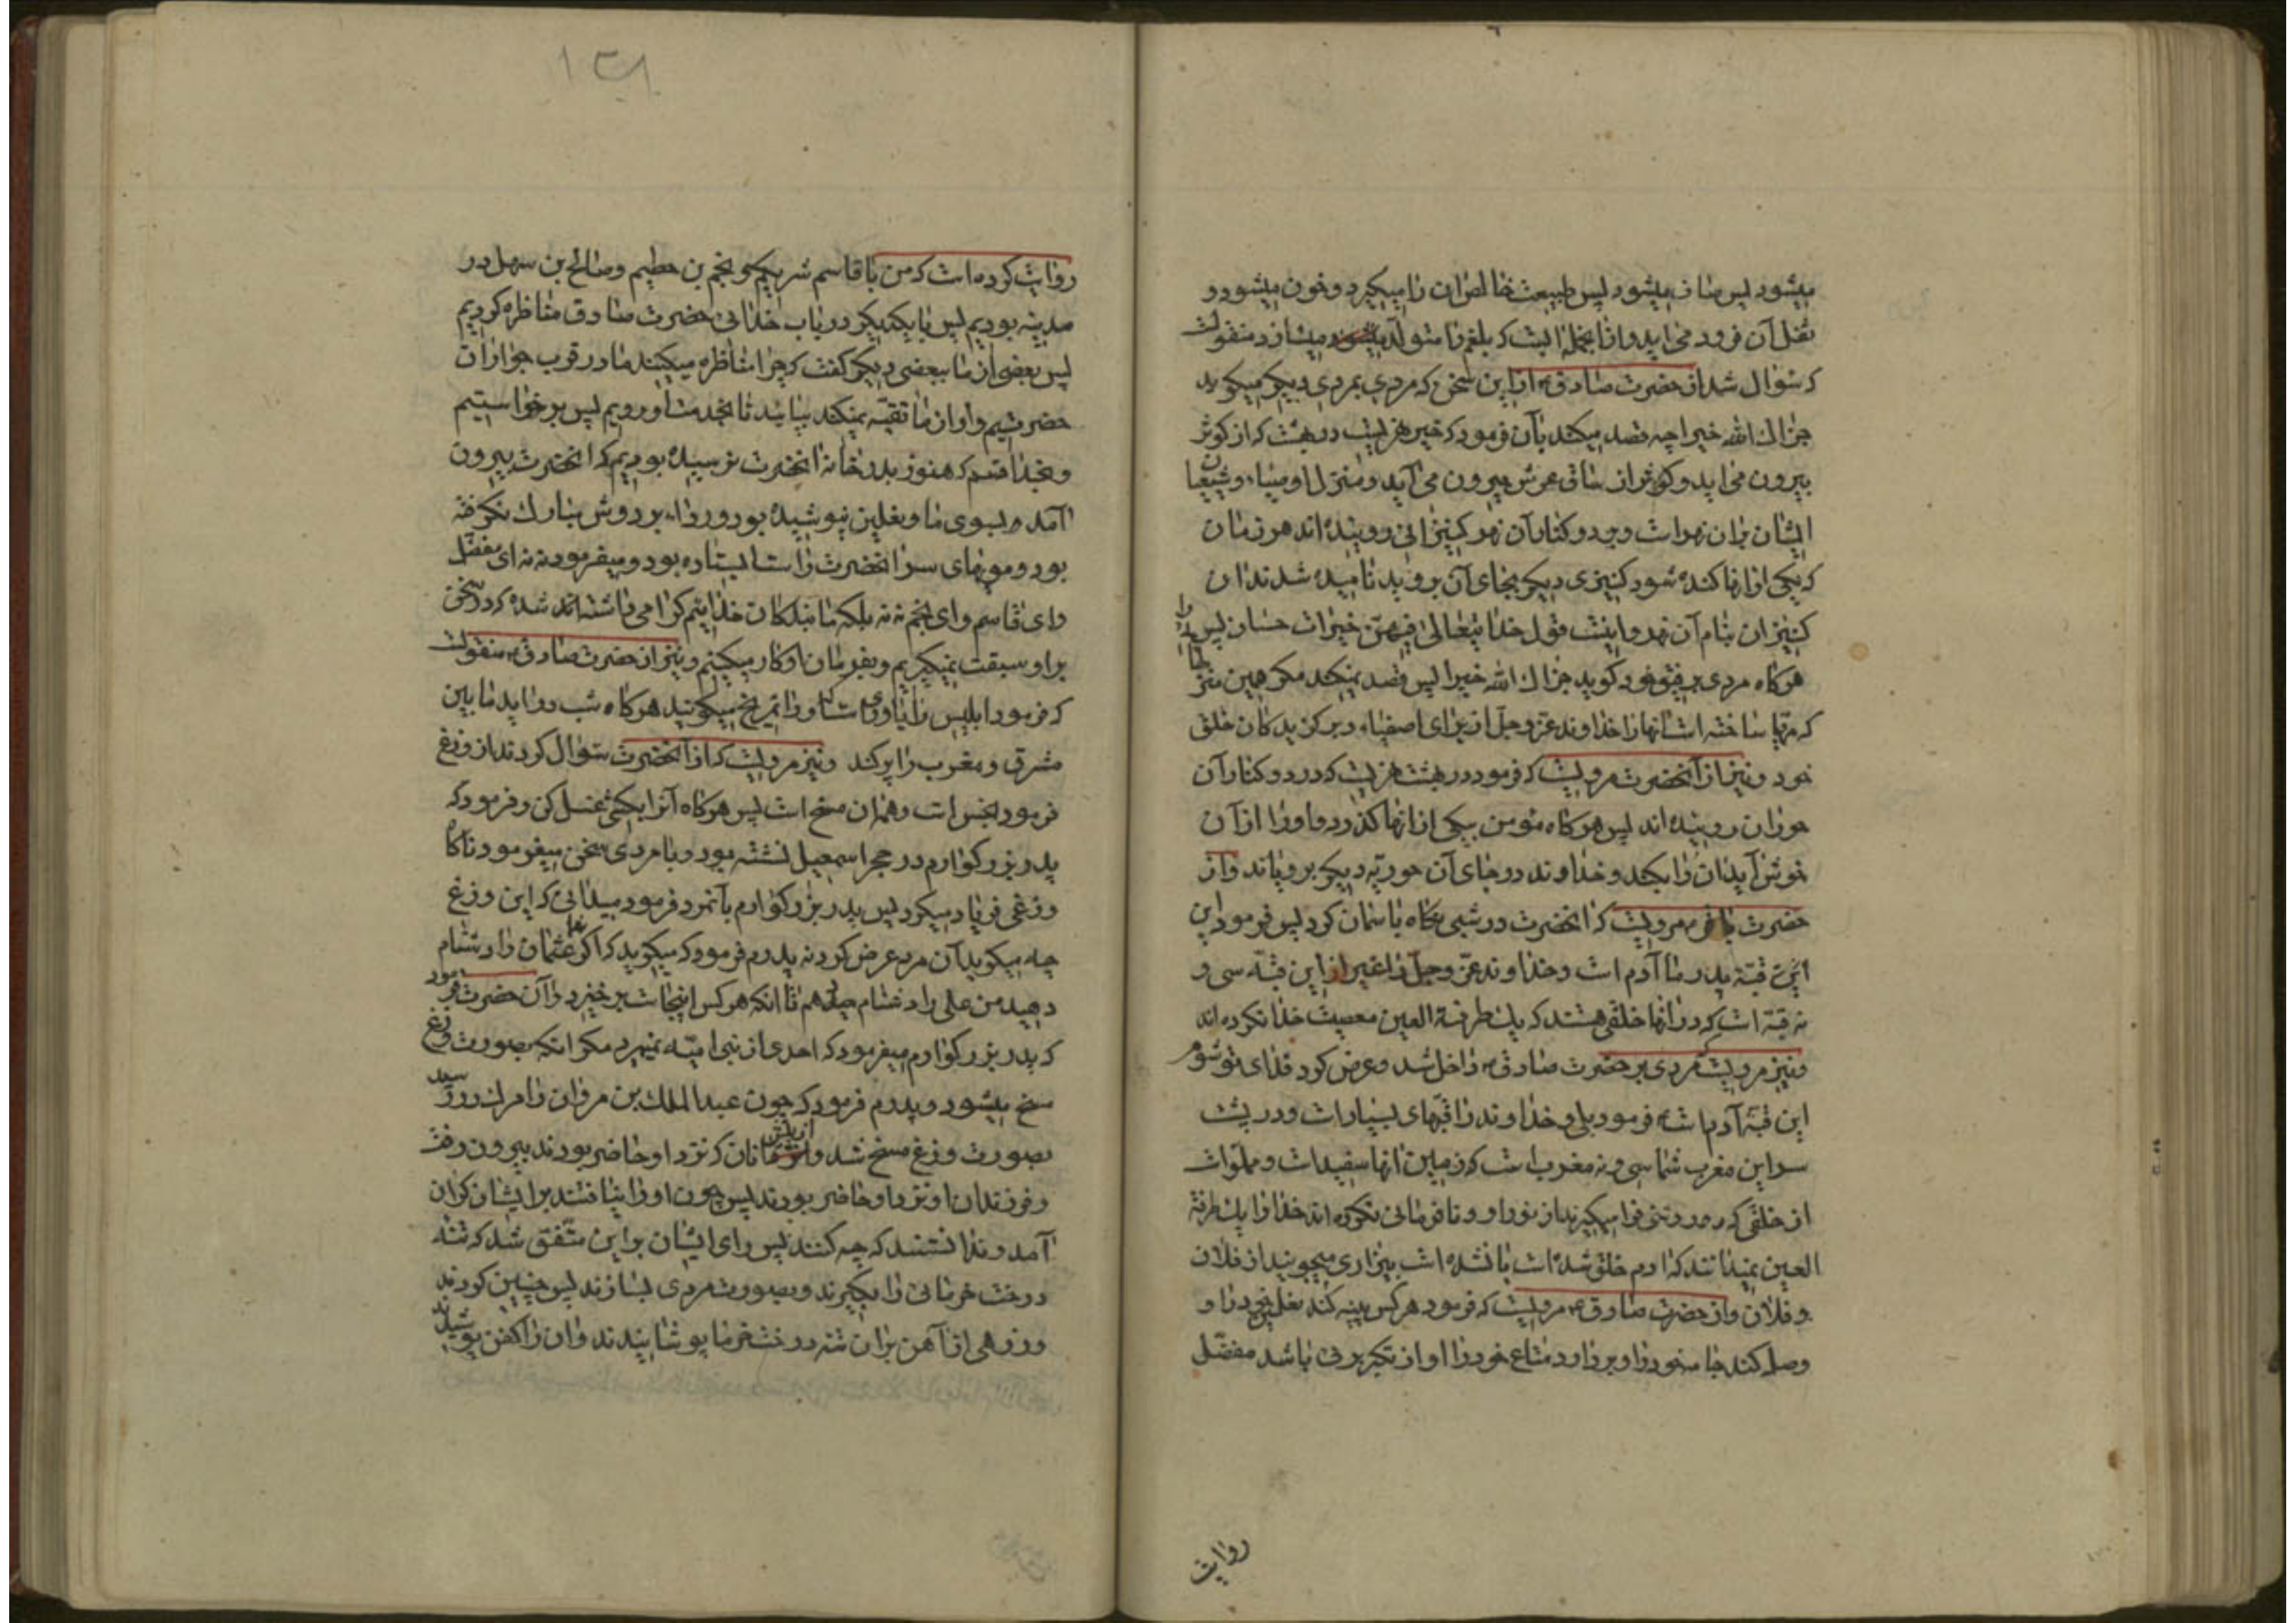 میشود پس صاف میشود پس طبیعت خالص ان را میگیرد و خون میشود و
ثقل آن فرود می اید واقا بجمله الیت که بلغم را متولد میسازد منقولست
که سؤال شد از حضرت صادق ع از این سخن که مردی بمردی دیگر میگوید
جزاک الله خیرا چه قصد میکند بآن فرمود که خیر نهریست در بهشت که از کوثر
بیرون می اید و کوثر از ساق عرش بیرون می آید و منزل اوصیاء و شیعیان
ایشان بران نهر است و بر دو کنار آن نهر کنیزانی روینده اند هر زمان
که یکی از انها کنده شود کنیزی دیگر بجای آن بروید نامیده شدند ان
کنیزان بنام آن نهر و اینست قول خدا یتعالی فیهن خیرات حسان پس
هرگاه مردی برفیق خود گوید جزاک الله خیرا پس قصد نمیکند مگر همین منزلها را
که مهیا ساخته است انها را خداوند عز و جل از برای اصفیاء و برگزیدگان خلق
خود و نیز از آنحضرت مرویست که فرمود در بهشت نهریست که در دو کنار آن
حوران روینده اند پس هرگاه مؤمن بیکی از انها گذرد و او را از آن
خوش آید ان را بکند و خداوند در جای آن حوریه دیگر برویاند و از
حضرت باقر ع مرویست که انحضرت در شبی نگاه باسمان کرد پس فرمود این
این قبه پدر ما آدم است و خداوند عز و جل را غیر از این قبه سی و
نه قبه است که در انها خلقی هستند که یک طرفة العین معصیت خدا نکرده اند
و نیز مرویست مردی بر حضرت صادق ع داخل شد و عرض کرد فدای تو شوم
این قبه آدم است فرمود بلی و خداوند را قبهای بسیار است و در پشت
سر این مغرب شما سی و نه مغرب است که زمین انها سفید است و مملو است
از خلقی که روشنی فرا میگیرند از نور او و نافرمانی نکرده اند خدا را یک طرفة
العین نمیدانند که ادم خلق شده است یا نشده است بیزاری میجویند از فلان
و فلان و از حضرت صادق ع مرویست که فرمود هر کس پینه کند نعلین خود را و
وصله کند جامه خود را و بردارد متاع خود را او از تکبر بری باشد مفضل
روایت
۱۳۸
روایت کرده است که من با قاسم شریکم و نجم بن حطیم و صالح بن سهل در
مدینه بودیم پس با یکدیگر در باب خدائی حضرت صادق مناظره کردیم
پس بعضی از ما ببعضی دیگر گفت که چرا مناظره میکنید ما در قرب جوار ان
حضرتیم و او از ما تقیه نمیکند بیائید تا بخدمت او رویم پس برخواستیم
و بخدا قسم که هنوز بدر خانه انحضرت نرسیده بودیم که انحضرت بیرون
آمد بسوی ما و نعلین نپوشیده بود و رداء بر دوش مبارک نگرفته
بود و مویهای سر انحضرت راست ایستاده بود و میفرمود نه نه ای مفضل
و ای قاسم و ای نجم نه نه بلکه ما بندگان خدائیم گرامی داشته شده که در سخن
بر او سبقت نمیگیریم و بفرمان او کار میکنیم و نیز از حضرت صادق ع منقولست
که فرمود ابلیس را یاوری است که او را تمریخ میگویند هرگاه شب در اید ما بین
مشرق و مغرب را پر کند و نیز مرویست که از آنحضرت سؤال کردند از وزغ
فرمود نجس است و همه ان مسخ است پس هرگاه آنرا بکشی غسل کن و فرمود که
پدر بزرگوارم در حجر اسمعیل نشسته بود و با مردی سخن میفرمود ناگاه
وزغی فریاد میکرد پس پدر بزرگوارم بآنمرد فرمود میدانی که این وزغ
چه میگوید آن مرد عرض کرد نه پدرم فرمود که میگوید که اگر شما عثمان را دشنام
دهید من علی را دشنام میدهم تا انکه هر کس اینجاست برخیزد و آن حضرت فرمود
که پدر بزرگوارم میفرمود که احدی از بنی امیه نمیرد مگر انکه بصورت وزغ
مسخ میشود و پدرم فرمود که چون عبدالملک بن مروان را مرگ در رسید
بصورت وزغ مسخ شد و از پیش انان که نزد او حاضر بودند بیرون رفت
و فرزندان او نزد او حاضر بودند پس چون او را نیافتند بر ایشان گران
آمد و ندانستند که چه کنند پس رای ایشان بر این متفق شد که تنه
درخت خرمائی را بگیرند و بصورت مردی بسازند پس چنین کردند
و زرهی از آهن بران تنه درخت خرما پوشانیدند و ان را کفن پوشیدند